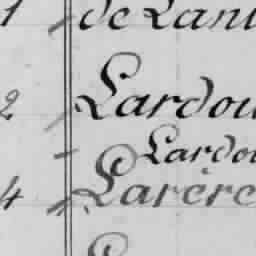 1 de Lam
2 Lardou
Lardou
4 Larère